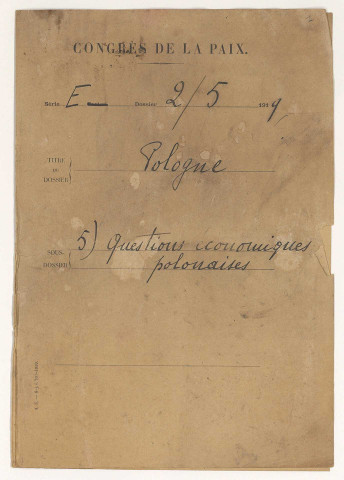 CONGRÈS DE LA PAIX.
Série E — Dossier 2/5 1919,
TITRE
DU
DOSSIER
Pologne
SOUS-
DOSSIER
5) Questions économiques
polonaises